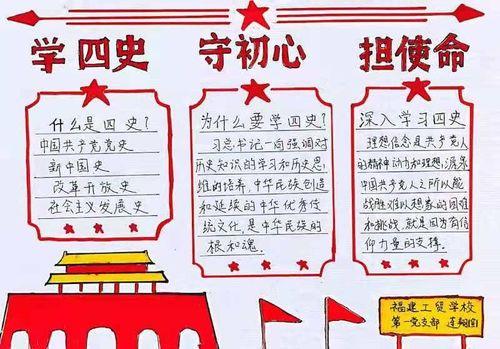 学四史 守初心 担使命
什么是四史?
中国共产党党史
新中国史
改革开放史
社会主义发展史
为什么要学四史?
习总书记一向强调对
历史知识的学习和历史思
维的培养,中华民族创造
和延续的中华优秀传
统文化,是中华民族的
根和魂.
深入学习四史
理想信念是共产党人
的精神动力和理想,源泉
中国共产党人之所以能
战胜难以想象的困难
和挑战,就是因为有信
仰力量的支撑.
福建工贸学校
第一党支部